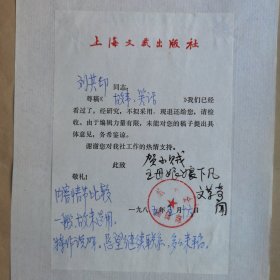 上海文艺出版社
同志:
尊稿《故事、笑话》我们已经
看过了,经研究,不拟采用。现退还给您,请
检收。由于编辑力量有限,未能对您的稿子提出具
体意见,务希鉴谅。
谢谢您对我社工作的热情支持。
此致
敬礼!
王母娘娘下凡
一九八 年 月 日
内容情节比较
一般,故未选用。
希望继续联系,多多来稿。